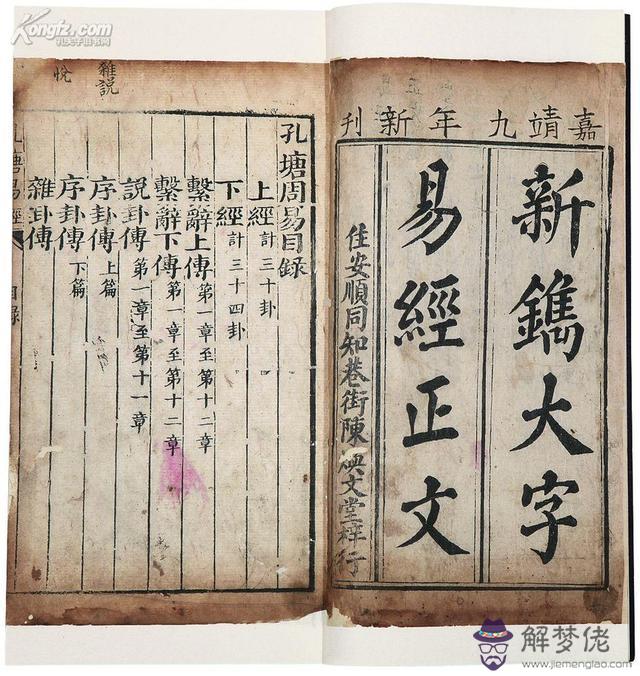 Kongfz.com
孔夫子旧书网
嘉靖九年新刊
新鐫大字
易經正文
住安順同知巷街陳文堂梓行
雜説
悅
孔塘周易目錄
上經 計三十卦
下經 計三十四卦
繫辭上傳 第一章至第十二章
繫辭下傳 第一章至第十二章
說卦傳 第一章至第十一章
序卦傳 上篇
序卦傳 下篇
雜卦傳
孔塘易經 目錄
解梦佬
www.jiemenglao.com